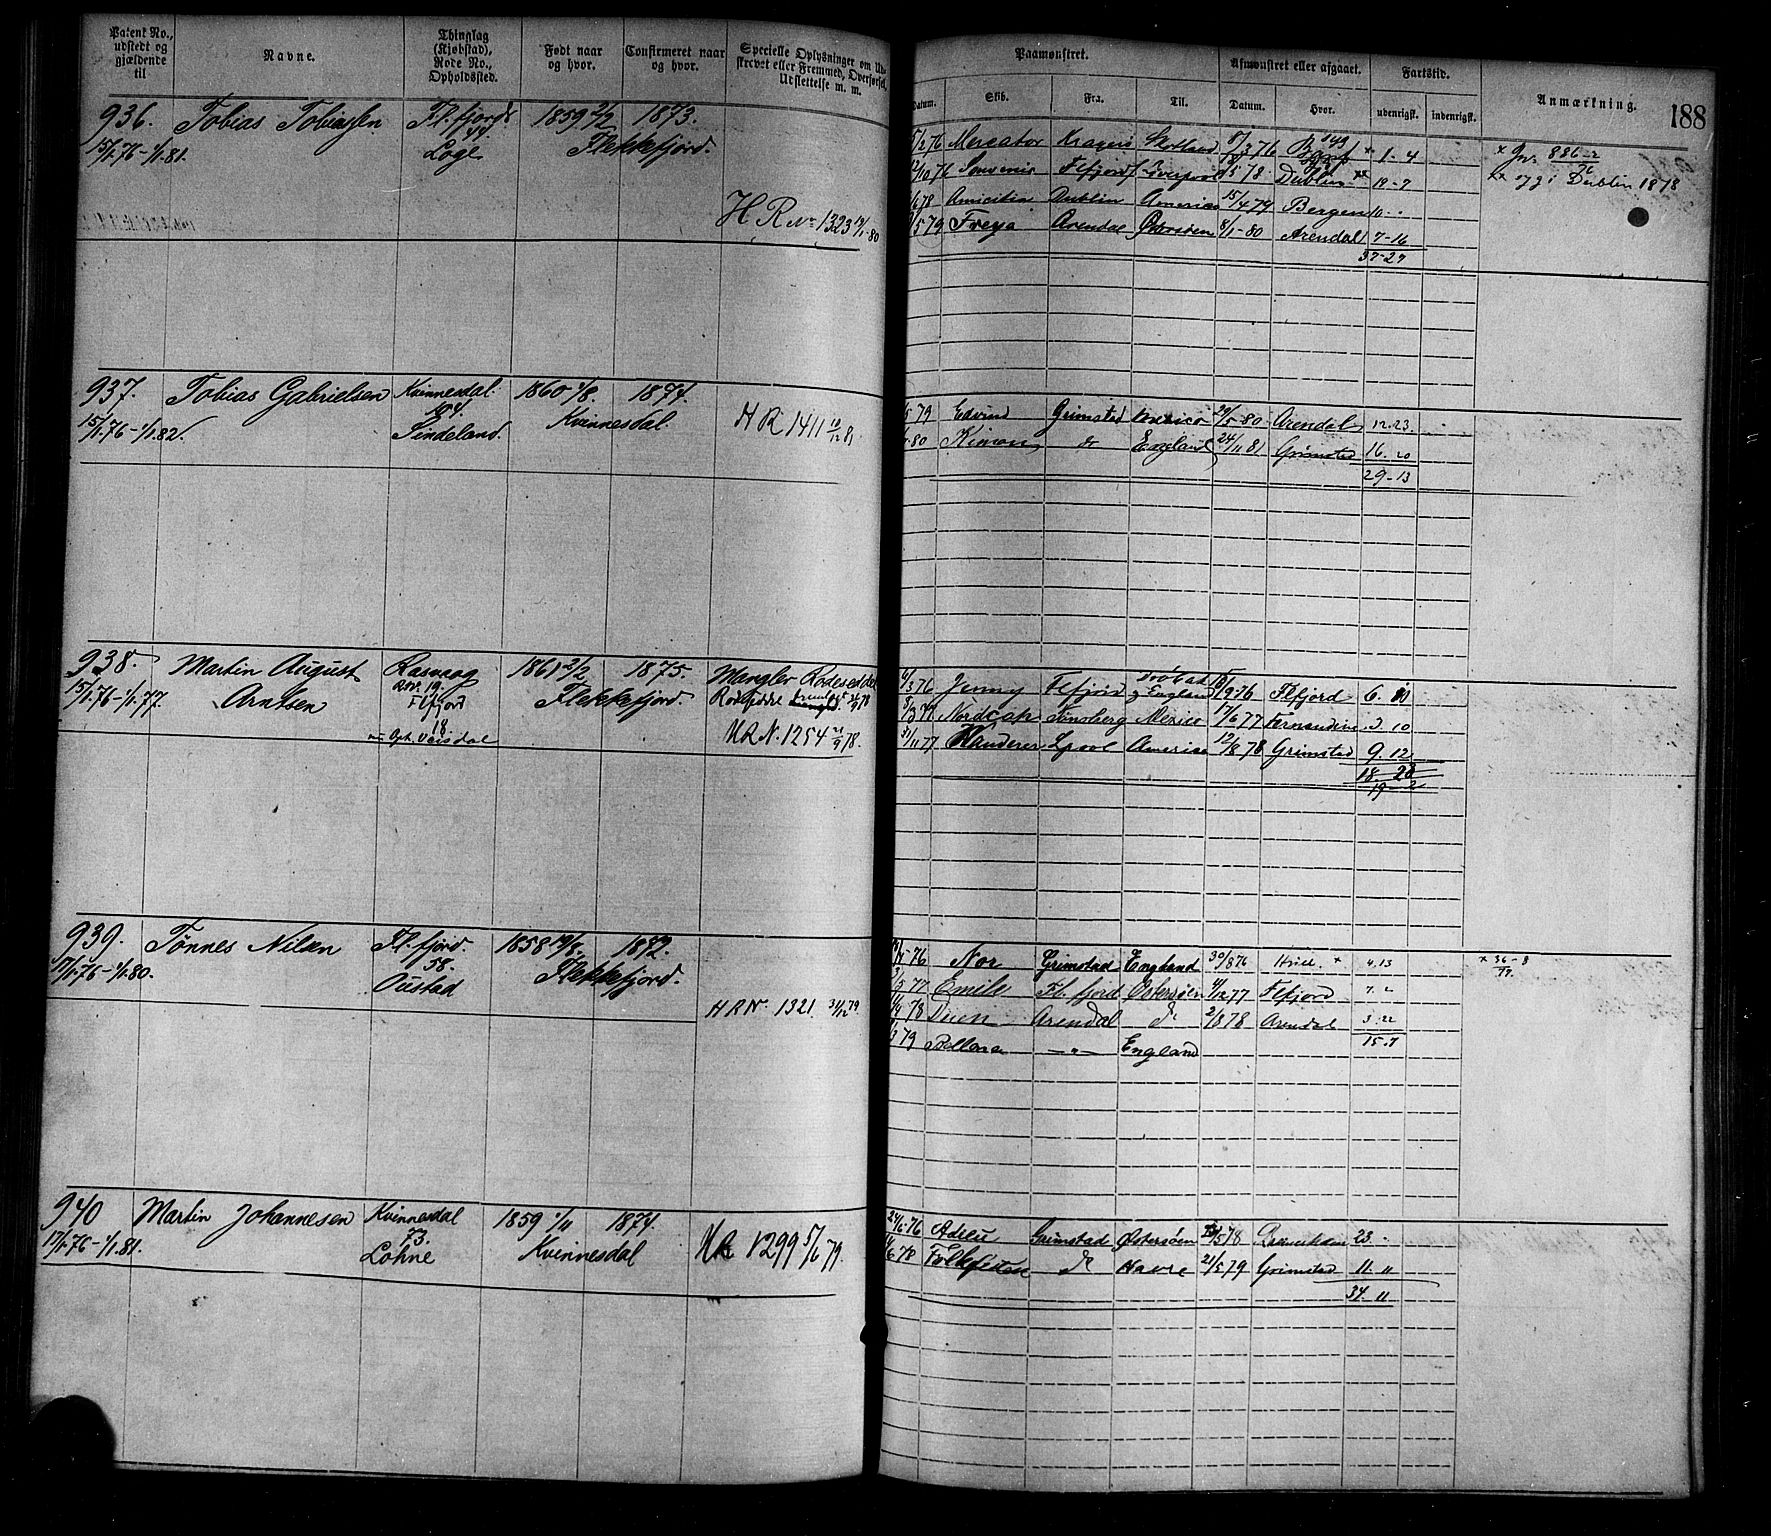 Patent No., udstedt og gjældende til
Navne.
Thinglag (Kjøbstad), Rode No., Opholdssted.
Født naar og hvor.
Confirmeret naar og hvor.
Specielle Oplysninger om Udskrevet eller Fremmed, Overførsel, Udslettelse m. m.
936. Tobias Tobiassen Fl.fjords 1859 2/2 1873.
15/1.76-1/1.81. 44 Loge Flekkefjord.
H R No 1323 /1-80
937. Tobias Gabrielsen Kvinnesdal. 1860 1/8. 1874.
15/1.76-1/1.82. 104. Sindeland. Kvinnesdal. H R 1411 10/12 81
938. Martin August Rasvaag 1861 2/2 1875. Mangler Rodeseddel
15/1.76-1/1.77. Arntsen R.No. 19. Flfjord Flekkefjord.
18 Oph. Veisdal H R N. 1254 21/9 78.
939. Tønnes Nilsen Fl.fjord. 1858 19/8. 1872.
17/1.76-1/1.80. 58. Oustad Flekkefjord.
H R No. 1321. 31/12 79
940 Martin Johannesen Kvinnesdal 1859 1/11 1874.
17/1.76-1/1.81. 73. Lohne Kvinnesdal H R 1299 5/6 79.
Paamønstret.
Afmønstret eller afgaaet.
Fartstid.
Anmærkning.
188
Datum. Skib. Fra. Til. Datum. Hvor. udenrigsk. indenrigsk.
/2 76 Mercator Kragerø Skotland 8/3 76 1-4 x Jnr 886-2/76
/10 76 Souvenir Flfjord Liverpool /5 78 Dublin xx 19-7 xx i Dublin 1878
/6 78 Amicitia Dublin America 15/4 79 Bergen 10
/5 79 Freya Arendal Østersøen 6/1-80 Arendal 7-16
37-27
/5 79 Edvind Grimstad Mexico 29/5-80 Arendal 12.23.
.80 Kimon do England 24/11 81 Grimstad 16.20
29-13
/3 76 Jenny Flfjord Drøbak & England /9 76 Flfjord 6.
/3 77 Nordcap Tønsberg Mexico 17/6 77 Fernandina 3.10
31/11 77 Flanderer Lpool America 12/8 78 Grimstad 9.12
18.28
19 2
/4-76 Nor Grimstad England 30/8 76 Hull. x 4.13 x 36-8/77.
/5 77 Emilie Fl.fjord Østersøen 4/12 77 Flfjord 7.2
/4 78 Duen Arendal do 2/8 78 Arendal 3.22
/3 79 Bellona -"- England 15.7
24/6-76 Adelei Grimstad Østersøen /5 78 23
/6 78 do Havre 21/5 79 Grimstad 11.11
34.11